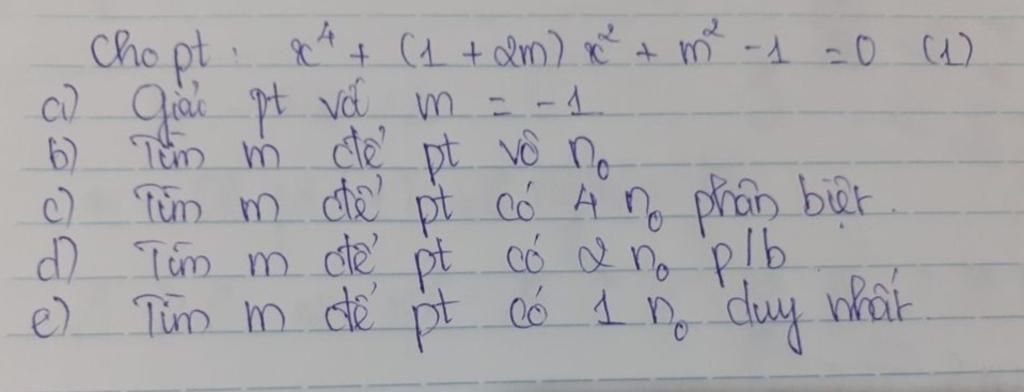 Cho pt: x⁴ + (1 + 2m) x² + m² - 1 = 0 (1)
a) Giải pt với m = -1
b) Tìm m để pt vô n₀
c) Tìm m để pt có 4 n₀ phân biệt.
d) Tìm m để pt có 2 n₀ p/b
e) Tìm m để pt có 1 n₀ duy nhất